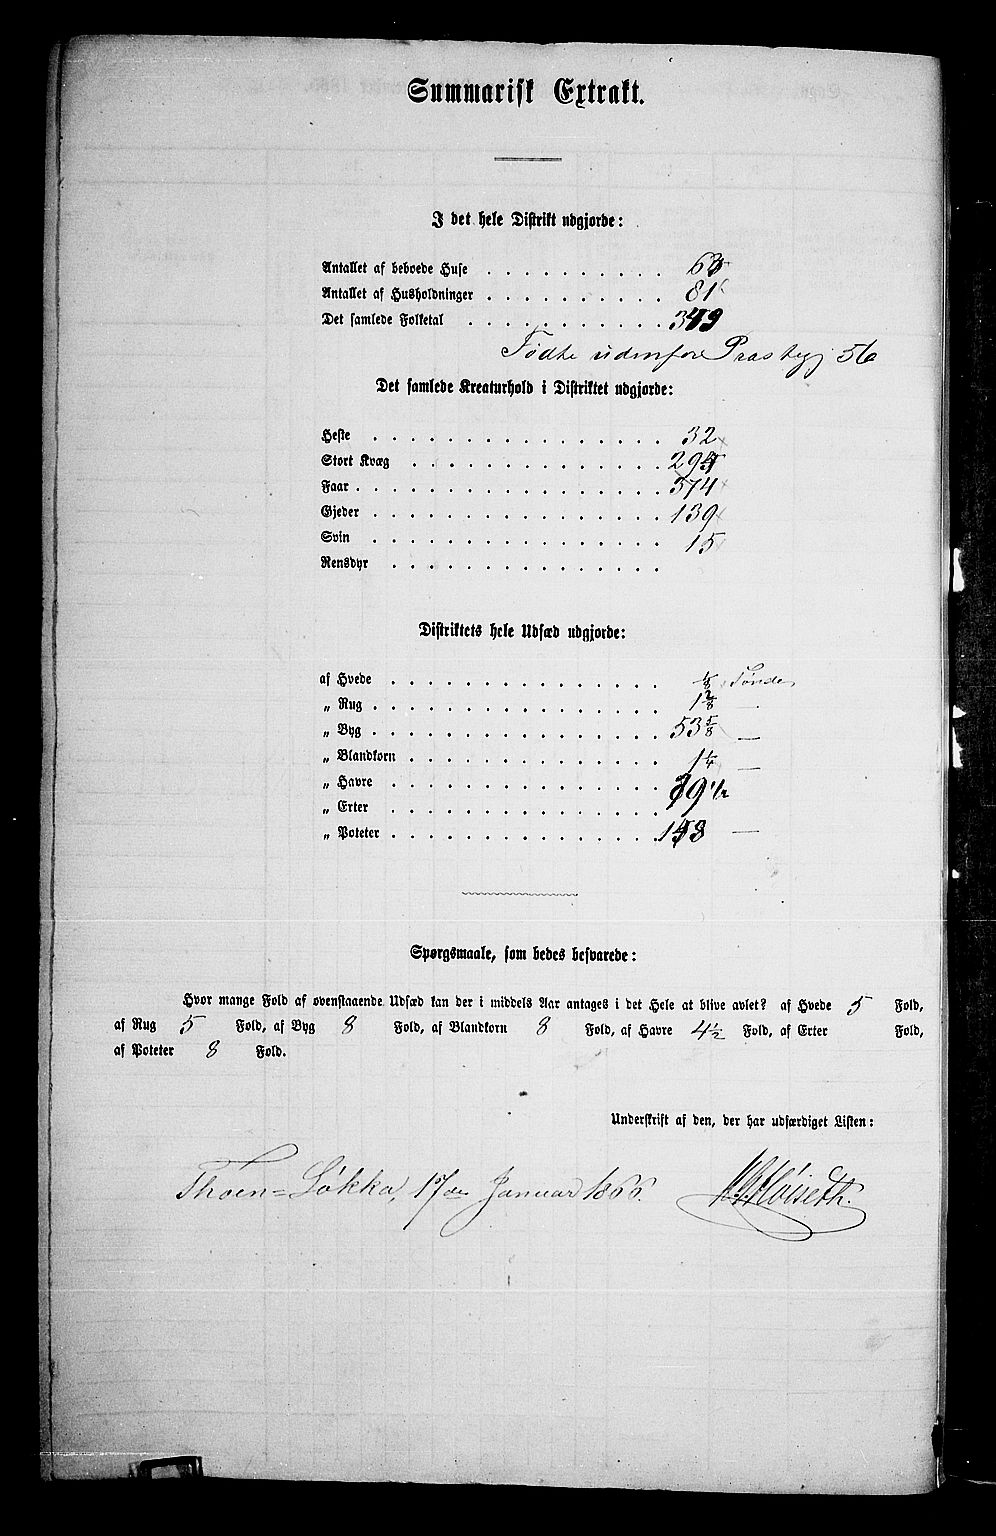 Summarisk Extrakt.
I det hele Distrikt udgjorde:
Antallet af beboede Huse . . . . . . . . . . 63
Antallet af Husholdninger . . . . . . . . . . 81
Det samlede Folketal . . . . . . . . . . .
Fødte udenfor Præstegj 56
Det samlede Kreaturhold i Distriktet udgjorde:
Heste . . . . . . . . . . . . . . . . 32
Stort Kvæg . . . . . . . . . . . . . .
Faar . . . . . . . . . . . . . . . . . 374
Gjeder . . . . . . . . . . . . . . . . 139
Svin . . . . . . . . . . . . . . . . 15
Rensdyr . . . . . . . . . . . . . . .
Distriktets hele Udsæd udgjorde:
af Hvede . . . . . . . . . . . . . . . Tønde
„ Rug . . . . . . . . . . . . . . . . 1 2/8 —
„ Byg . . . . . . . . . . . . . . . . 53 5/8 —
„ Blandkorn . . . . . . . . . . . . . . 1 1/4 —
„ Havre . . . . . . . . . . . . . . .
„ Erter . . . . . . . . . . . . . . .
„ Poteter . . . . . . . . . . . . . . . —
Spørgsmaale, som bedes besvarede:
Hvor mange Fold af ovenstaaende Udsæd kan der i middels Aar antages i det Hele at blive avlet? af Hvede 5 Fold,
af Rug 5 Fold, af Byg 8 Fold, af Blandkorn 8 Fold, af Havre 4 1/2 Fold, af Erter Fold,
af Poteter 8 Fold.
Underskrift af den, der har udfærdiget Listen:
Thoen=Løkka, 17de Januar 1866. Høiseth.